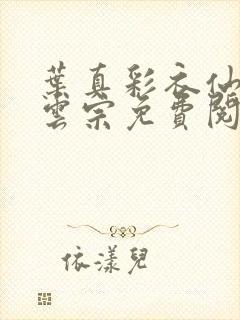 葉真彩衣仙
雲宗免費閱
依漾兒